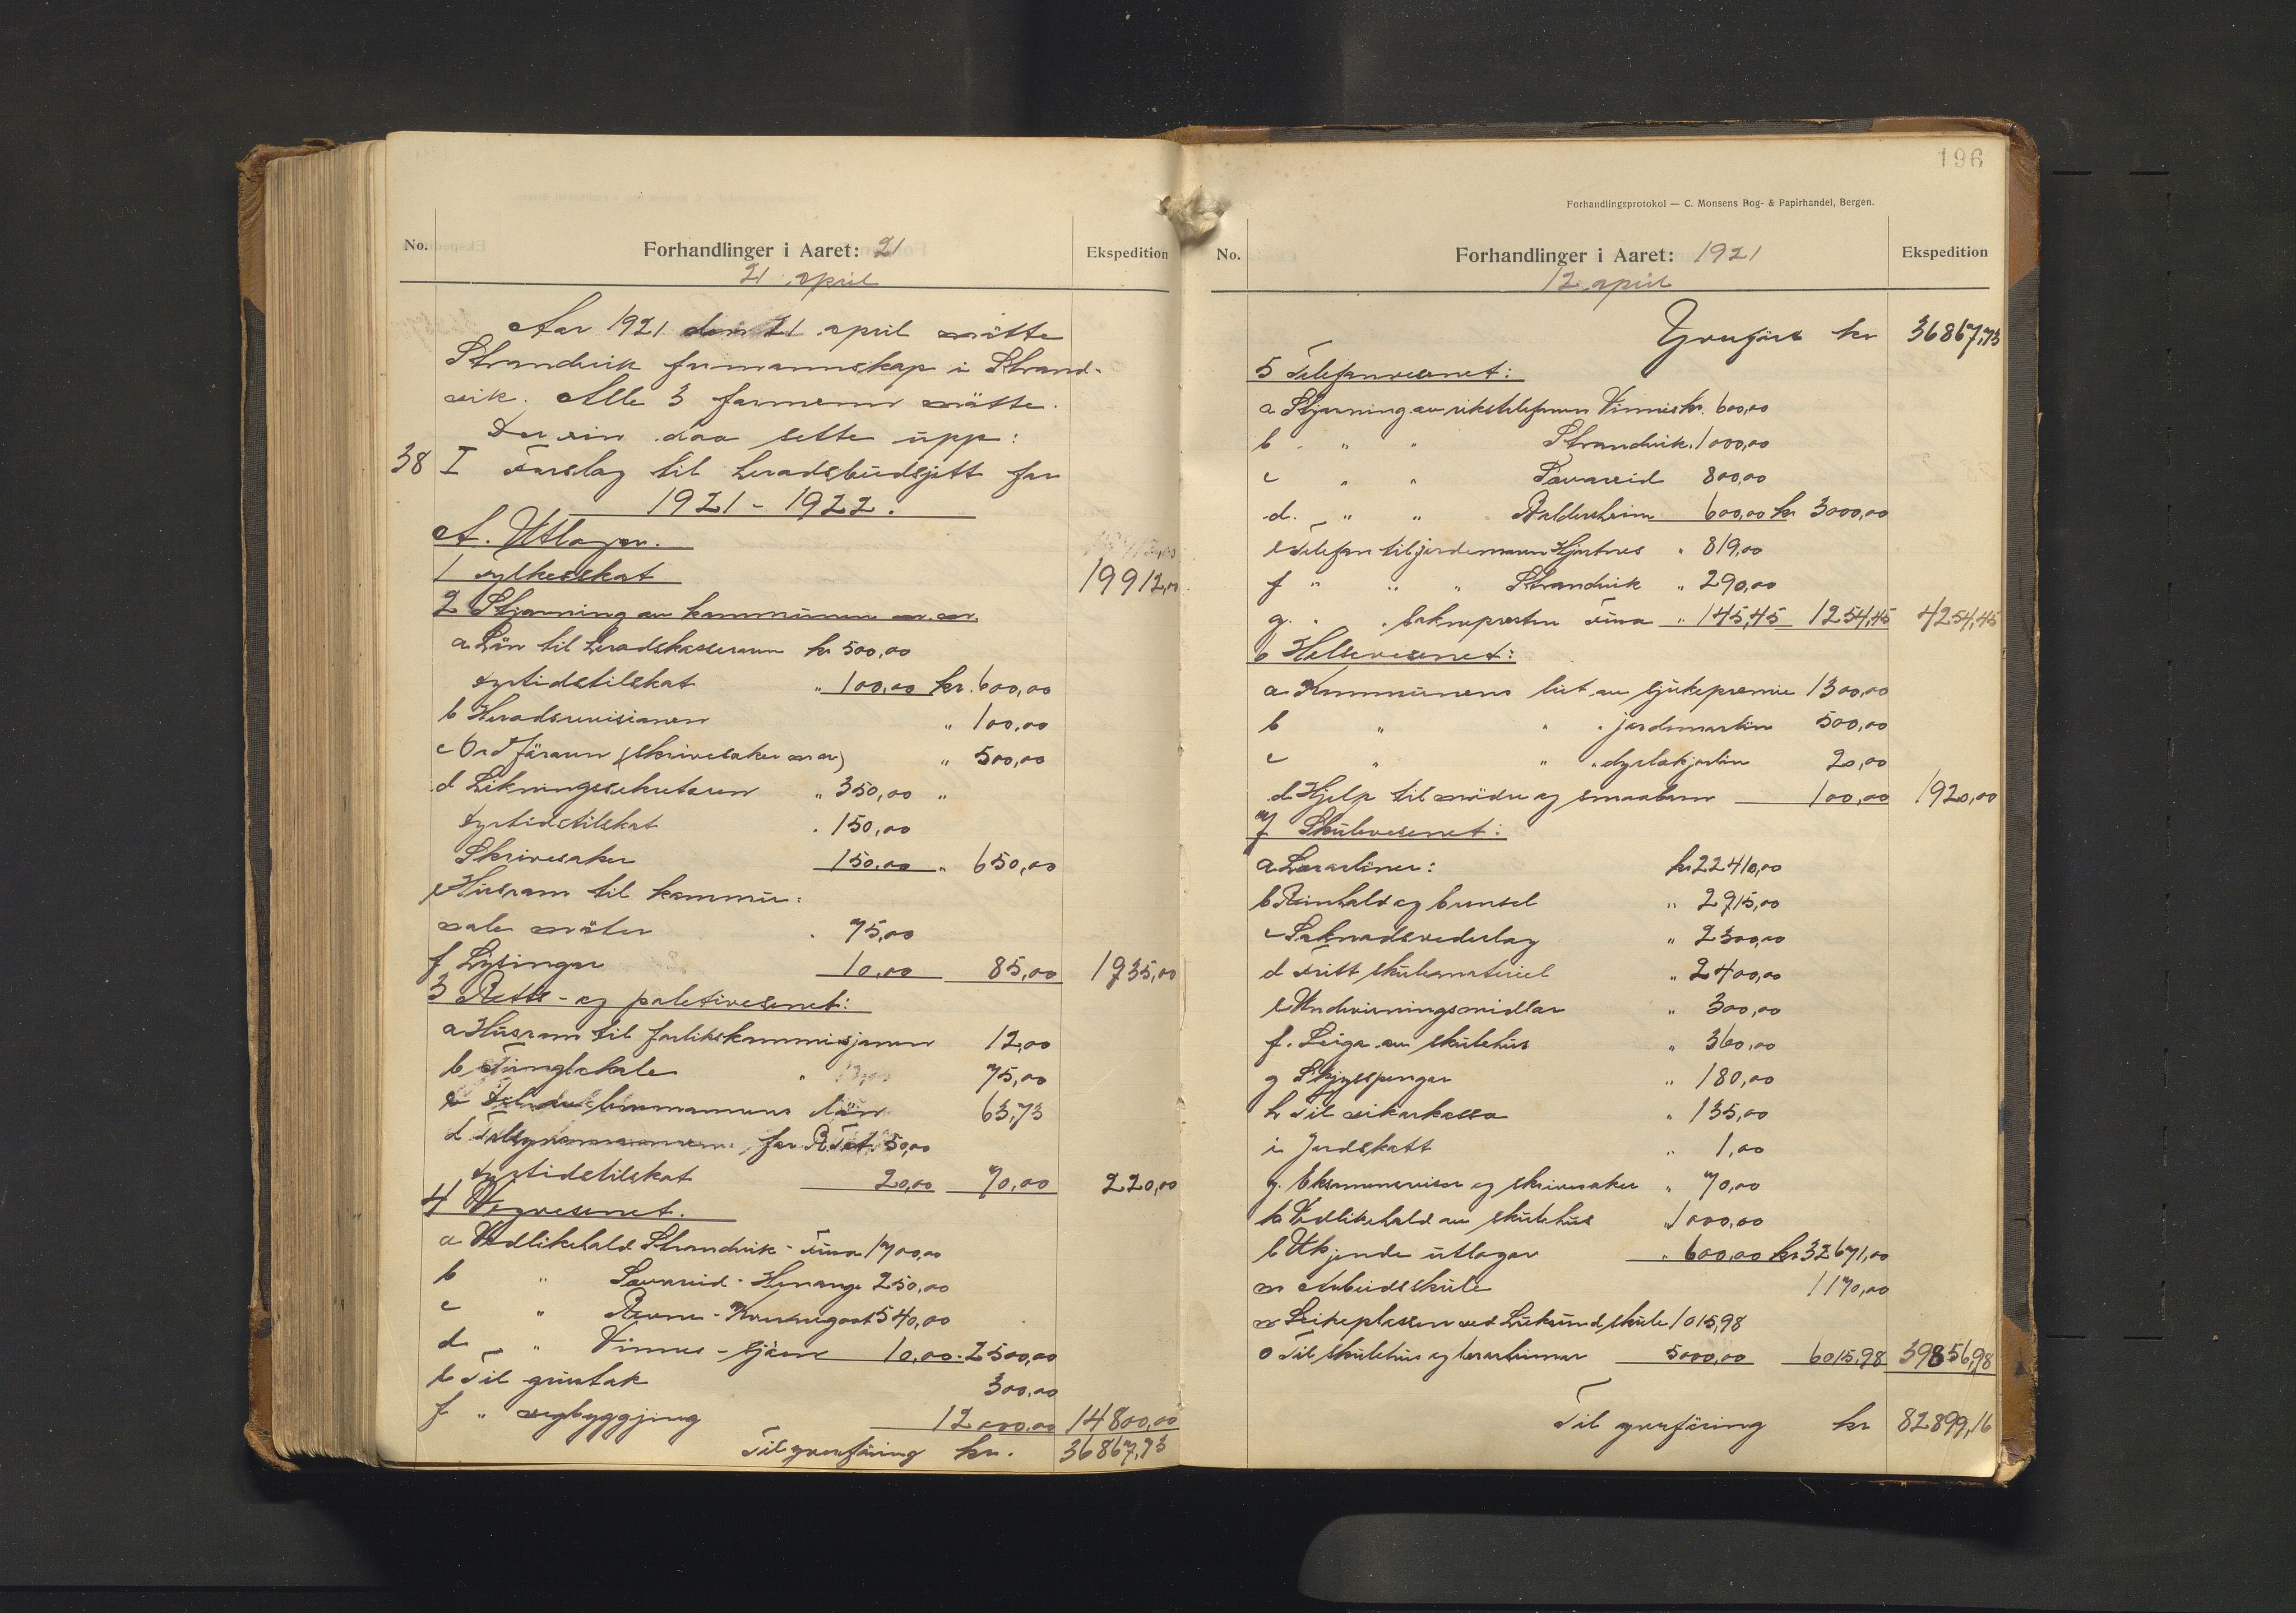 No.
Forhandlinger i Aaret: 21
Ekspedition
21. april
Aar 1921 den 21 april mötte
Strandvik formannskap i Strand-
vik. Alle 3 formenn mötte.
Dei vin daa sette upp:
38 I Forslag til heradsbudsjett for
1921-1922.
A. Utlogor.
1 Fylkesskat 19912,00
2 Stjorning av kommunen m.m.
a Lön til heradskasseraren kr 500,00
dyrtidstilskot " 100,00 kr. 600,00
b Heradsrevisionen " 100,00
c Ordföraren (skrivesaker m.m) " 500,00
d Likningssekretæren " 350,00 "
dyrtidstilskot . 150,00
Skrivesaker 150,00 " 650,00
e Husrom til kommu-
nale möter . 75,00
f Lysingar 10,00 85,00 1935,00
3 Retts- og politivesenet:
a Husrom til forlikskommisjonen 12,00
b Tinglokale 75,00
c lensmannens lön 63,73
d for R. Tat. 50,00
dyrtidstilskot 20,00 70,00 220,00
4 Vegvesenet.
a Vedlikehald Strandvik - Fusa 1700,00
b " Sævareid - Henange 250,00
c " Revne - 540,00
d " Vinnes - sjöen 10,00 - 2500,00
e Til grustak 300,00
f " vegbyggjing 12000,00 14800,00
Til yverföring kr. 36867,73
196
Forhandlingsprotokol — C. Monsens Bog- & Papirhandel, Bergen.
No.
Forhandlinger i Aaret: 1921
Ekspedition
12 april
Yverfört kr 36867,73
5 Telefonvesenet:
a Stjorning av rikstelefonen Vinnes kr. 600,00
b " " Strandvik. 1000,00
c " " Sævareid 800,00
d. " " Baldersheim 600,00 kr 3000,00
e Telefon til jordemorn Hjartnes " 819,00
f " " " Strandvik " 290,00
g. " . sokneprestn Fusa " 145,45 1254,45 4254,45
6 Helsevesenet:
a Kommunens lut av sjukepremie 1300,00
b " " " jordmorlön 500,00
c " " " dyrlækjarlön 20,00
d Hjelp til mödre og smaaborn 100,00 1920,00
7 Skulevesenet:
a Lærarlöner: kr 22410,00
b Reinhald og brensel " 2915,00
c Saknadsvederlag " 2300,00
d Fritt skulemateriel " 2400,00
e Undervisningsmidlar " 300,00
f. Leiga av skulehus " 360,00
g Skysspengar " 180,00
h Til vikarkassa " 135,00
i Jordskatt " 1,00
j. Eksamensvisor og skrivesaker " 70,00
k Vedlikehald av skulehus " 1000,00
l Ukjende utlogor " 600,00 kr 32671,00
m Arbeidsskule 1170,00
n Leikeplassen ved Lüksund skule 1015,98
o Til skulehus og lærarheimar 5000,00 6015,98 39856,98
Til yverföring kr 82899,16